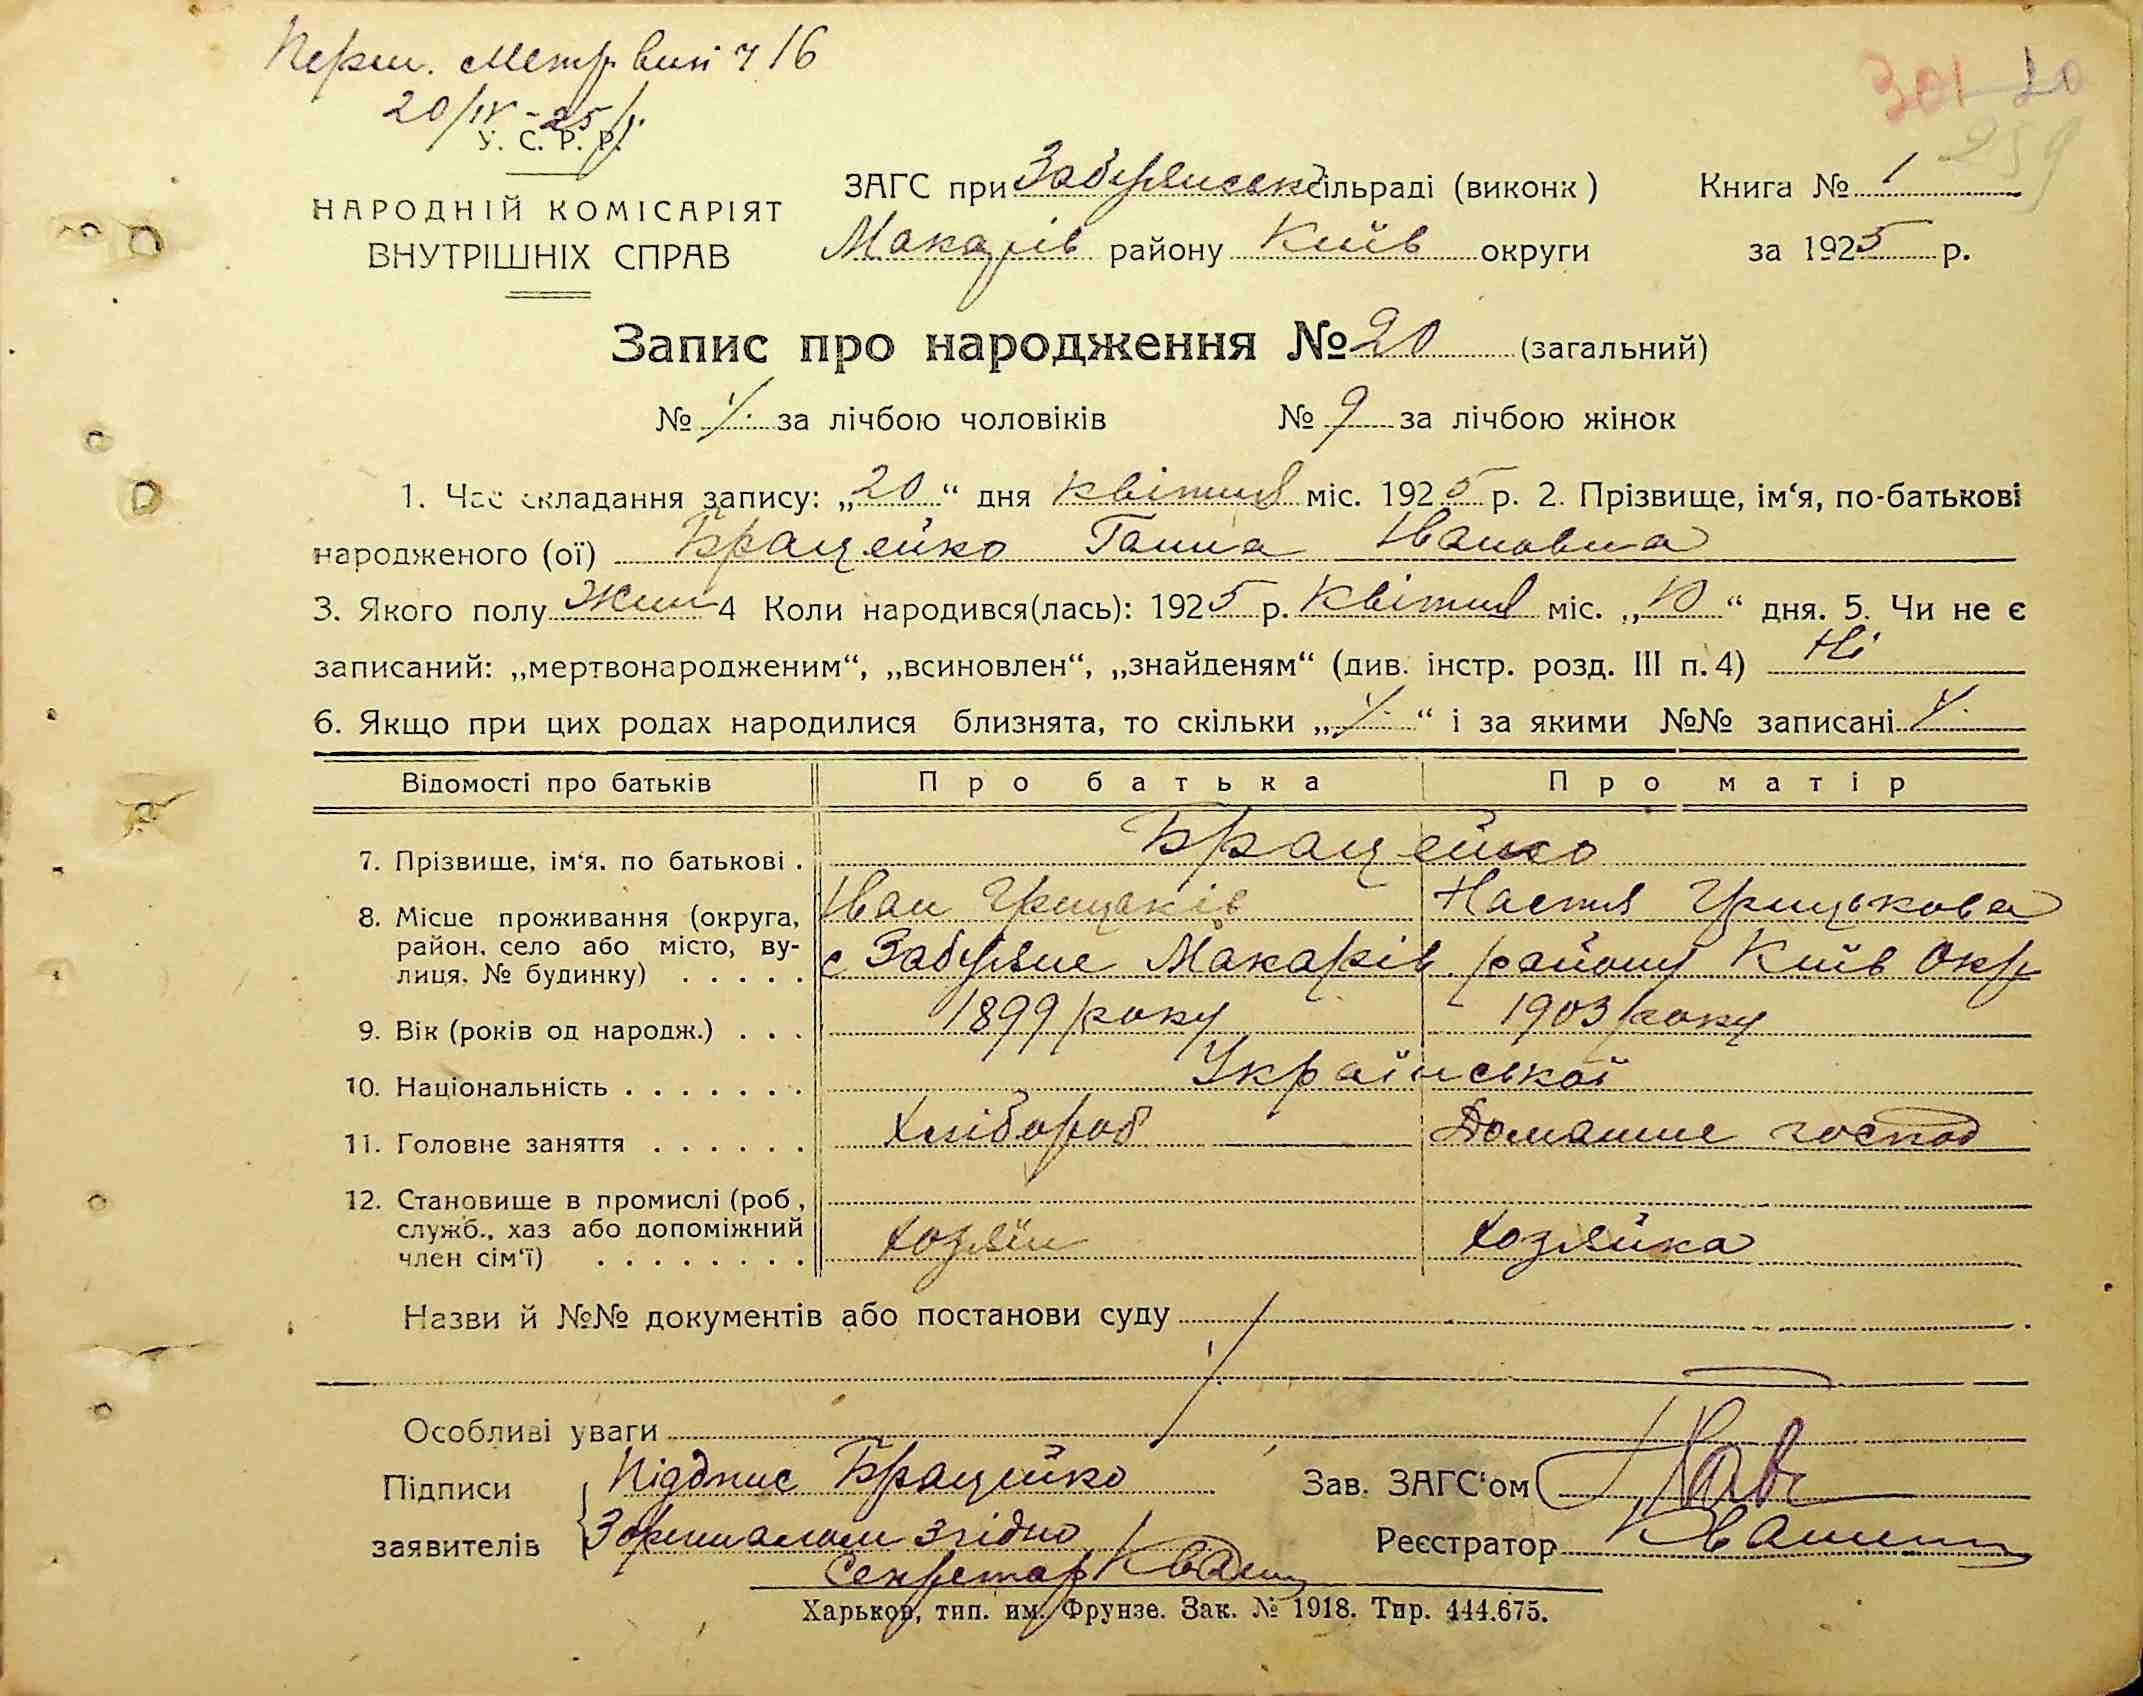 Перш. Метр вип ч 16
20/IV-25 р.
301 20
259
У. С. Р. Р.
НАРОДНІЙ КОМІСАРІЯТ
ВНУТРІШНІХ СПРАВ
ЗАГС при Забуянськ сільраді (виконк)
Книга № 1
Макарів району Київ округи
за 1925 р.
Запис про народження № 20 (загальний)
№ за лічбою чоловіків № 9 за лічбою жінок
1. Час складання запису: „20“ дня квітня міс. 1925 р. 2. Прізвище, ім‘я, по-батькові
народженого (ої) Брацейко Ганна Ивановна
3. Якого полу Жин 4 Коли народився(лась): 1925 р. Квітня міс. „10“ дня. 5. Чи не є
записаний: „мертвонародженим“, „всиновлен“, „знайденям“ (див. інстр. розд. III п. 4) Ні
6. Якщо при цих родах народилися близнята, то скільки „ “ і за якими №№ записані
Відомості про батьків Про батька Про матір
7. Прізвище, ім‘я. по батькові . Брацейко
Иван Грицьків Настя Грицькова
8. Місце проживання (округа,
район, село або місто, ву-
лиця, № будинку) . . . . . с Забуяне Макарів району Київ Окр
9. Вік (років од народж.) . . . 1899 року 1903 року
10. Національність . . . . . . . Української
11. Головне заняття . . . . . . Хлібороб Домашнє господ
12. Становище в промислі (роб,
служб., хаз або допоміжний
член сім‘ї) . . . . . . . . Хозяїн Хозяйка
Назви й №№ документів або постанови суду
Особливі уваги
Підписи
заявителів
Підпис Брацейко
З оригиналом згідно
Секретар Кваш
Зав. ЗАГС‘ом
Реєстратор
Харьков, тип. им. Фрунзе. Зак. № 1918. Тир. 444.675.